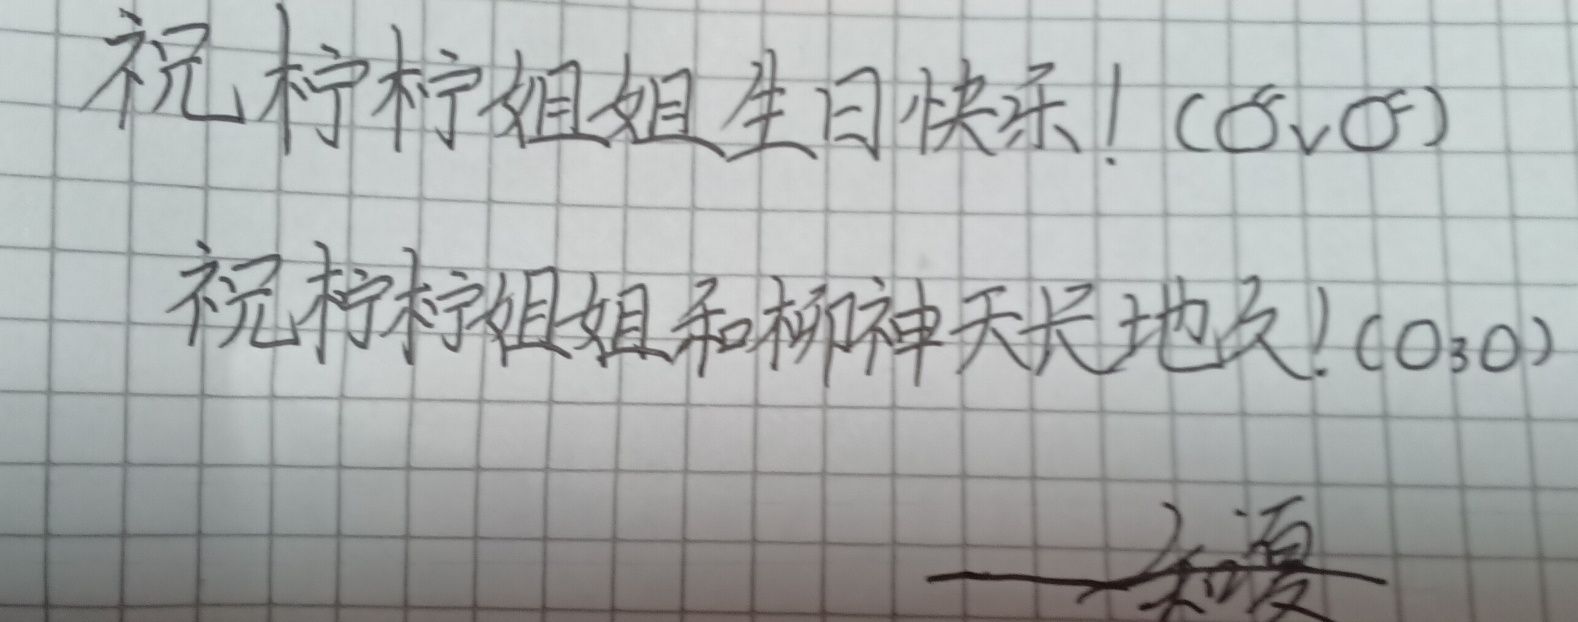 祝柠柠姐姐生日快乐！(σvσ)
祝柠柠姐姐和柳神天长地久！(O3O)